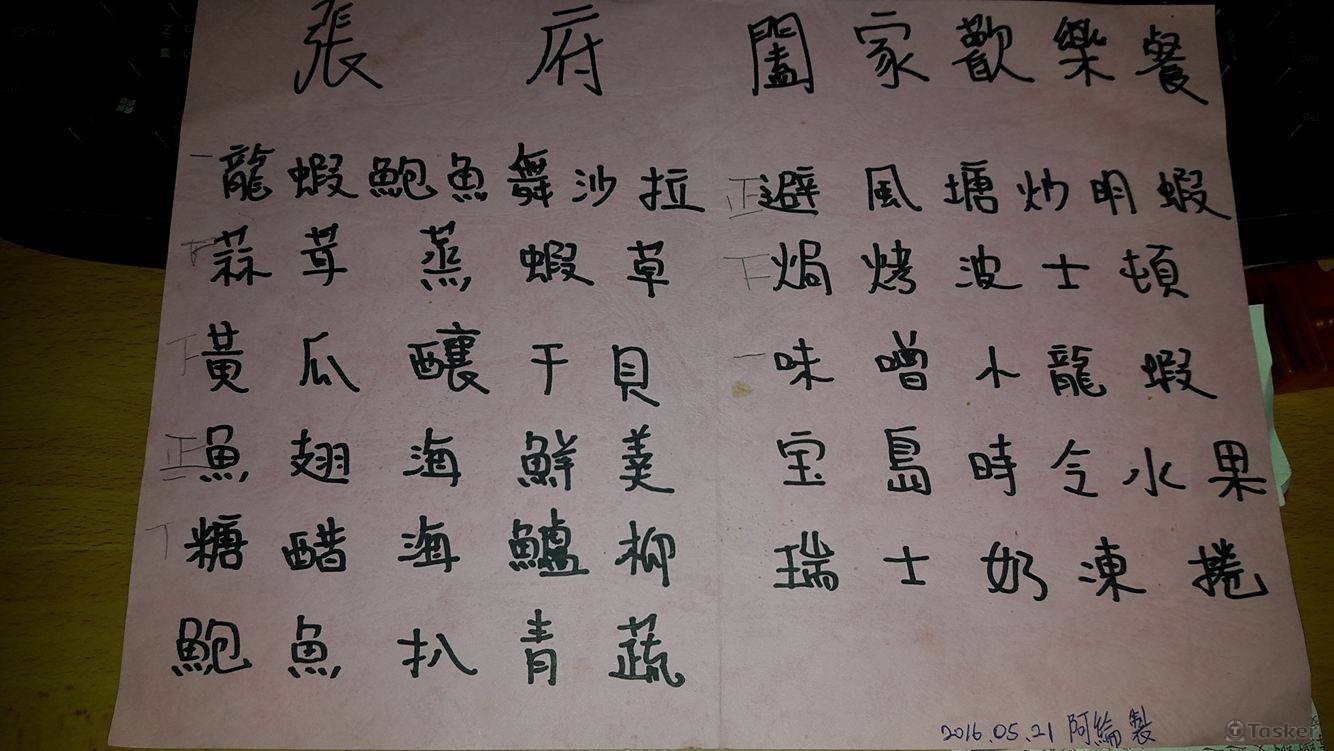 張府 闔家歡樂餐
龍蝦鮑魚舞沙拉
蒜茸蒸蝦草
黃瓜釀干貝
魚翅海鮮羹
糖醋海鱸柳
鮑魚扒青蔬
避風塘炒明蝦
焗烤波士頓
味噌小龍蝦
宝島時令水果
瑞士奶凍捲
2016.05.21 阿綸製
Tasker